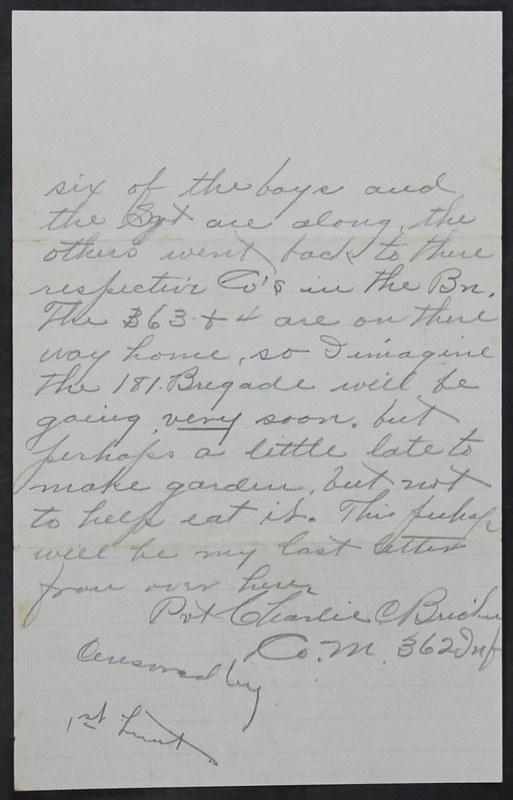 six of the boys and
the Sgt are along, the
others went back to there
respective Co's in the Bn.
The 363 & 4 are on there
way home, so I imagine
the 181. Bregade will be
going very soon. but
perhaps a little late to
make garden, but not
to help eat it. This perhaps
will be my last letter
from over here
Pvt Charlie O
Co. M. 362 Inf
Censored by
1st Lieut